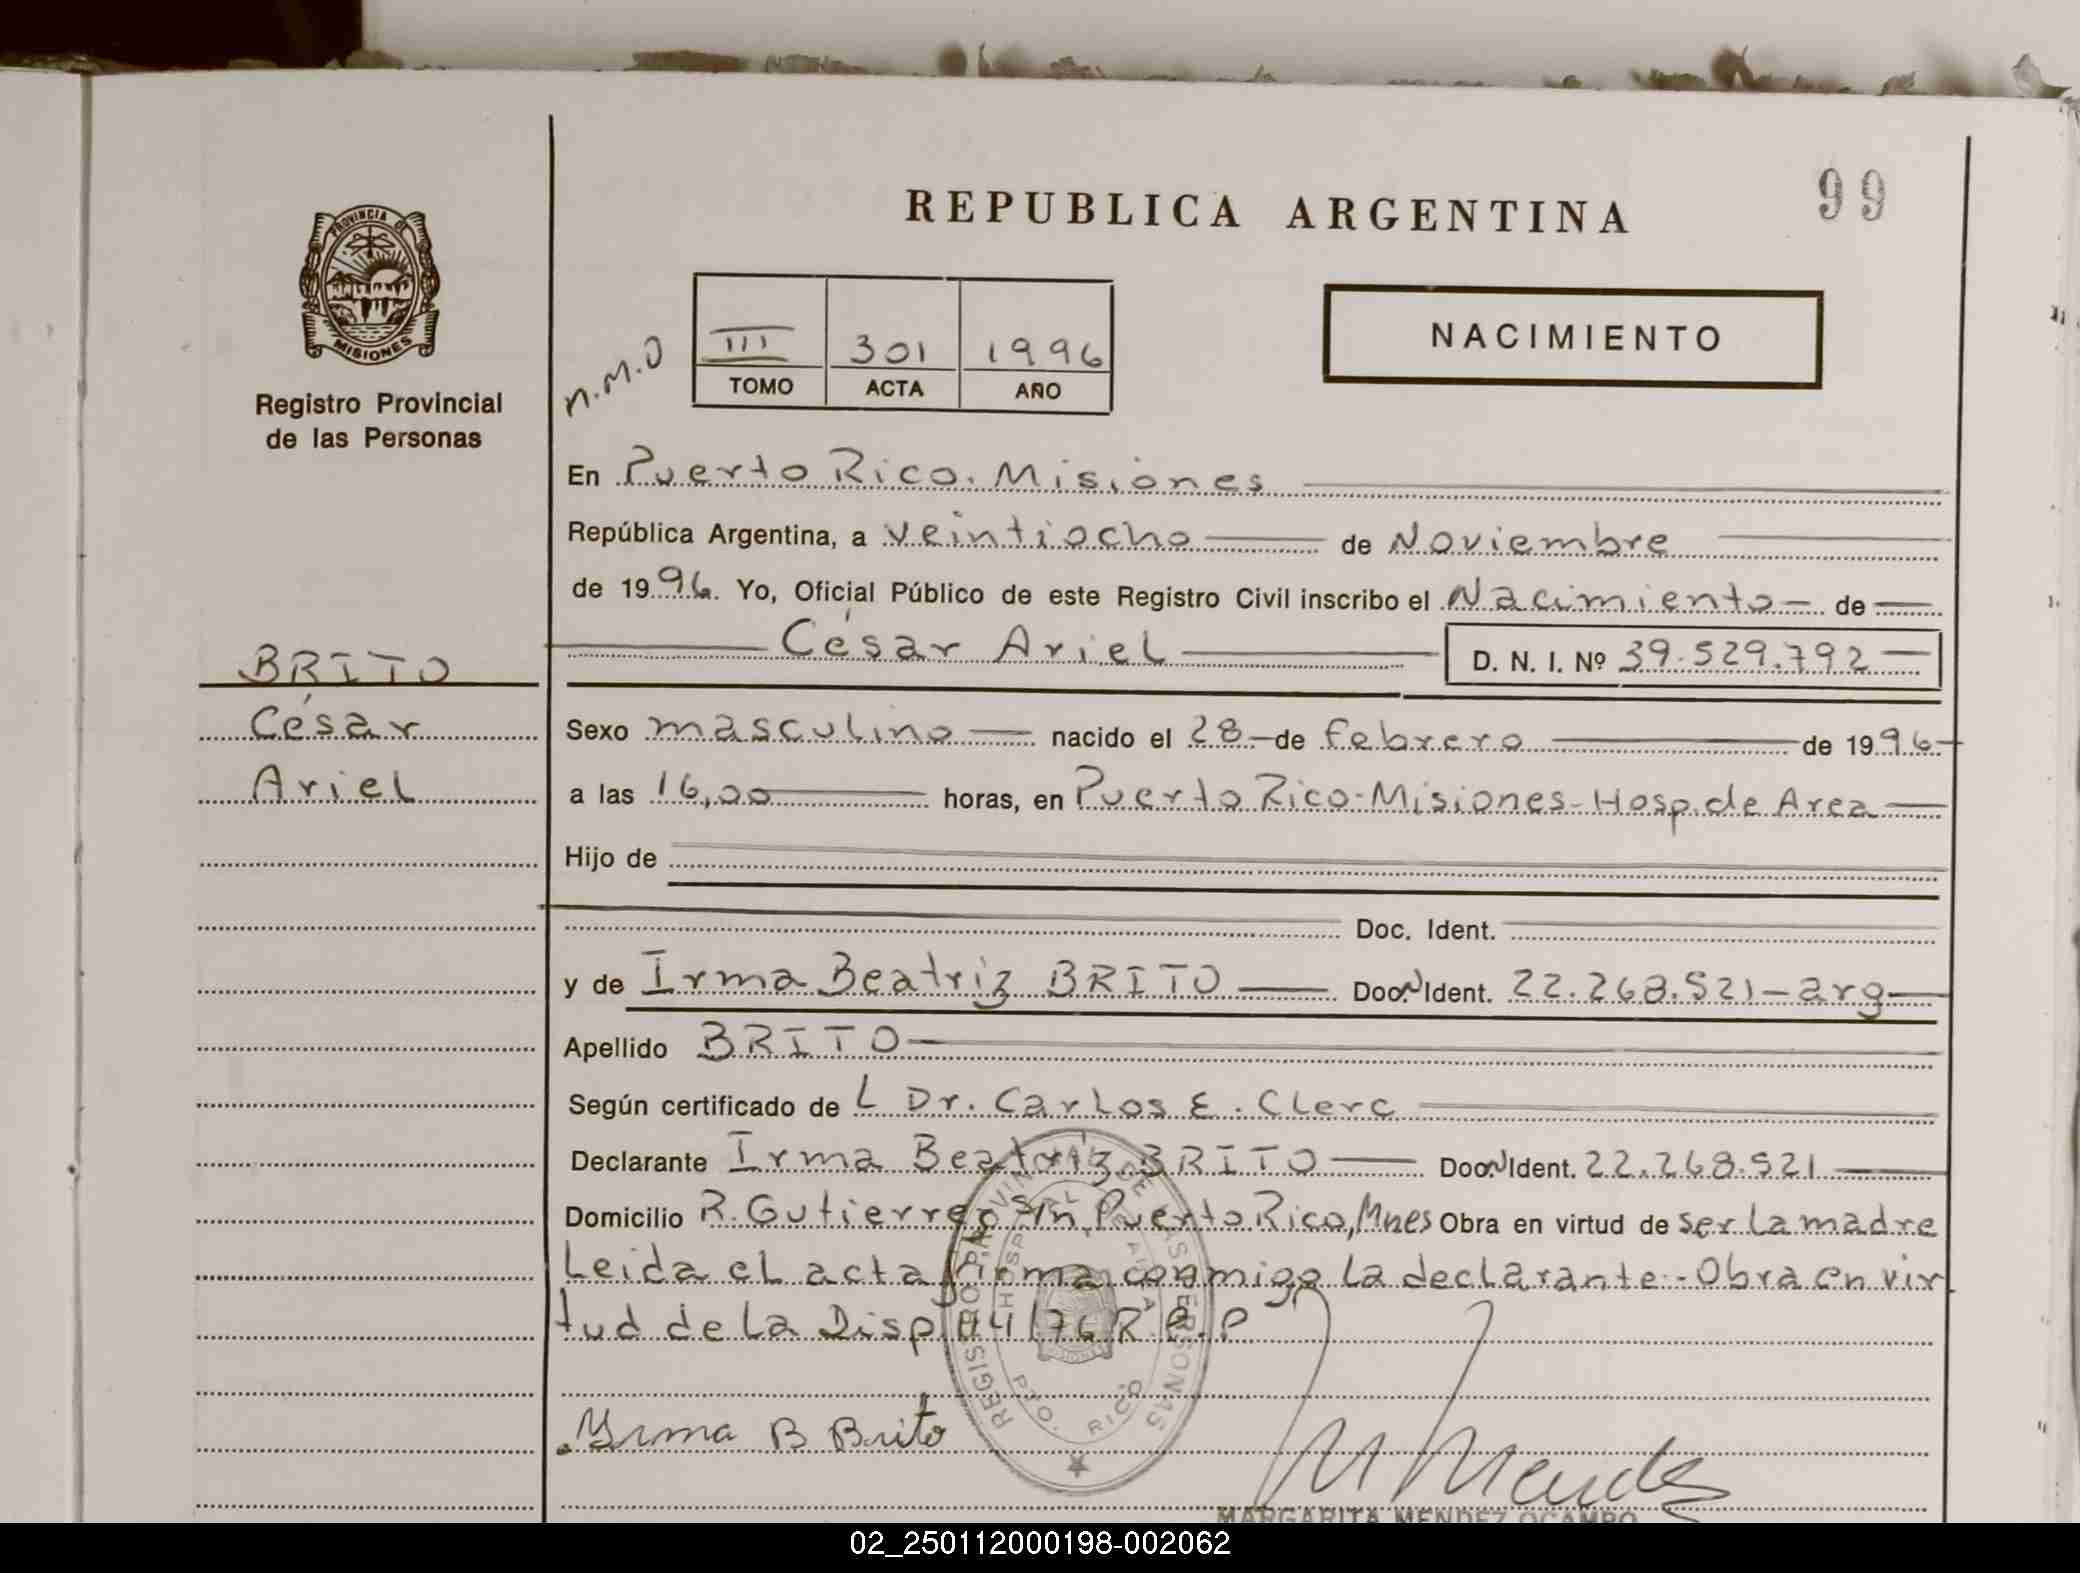 REPUBLICA ARGENTINA
99
PROVINCIA DE
MISIONES
Registro Provincial
de las Personas
n.m.o
III 301 1996
TOMO ACTA AÑO
NACIMIENTO
En Puerto Rico. Misiones
República Argentina, a veintiocho de Noviembre
de 1996. Yo, Oficial Público de este Registro Civil inscribo el Nacimiento de
César Ariel D. N. I. Nº 39.529.792
BRITO
César
Ariel
Sexo masculino nacido el 28 de febrero de 1996
a las 16,00 horas, en Puerto Rico-Misiones-Hosp.de Area
Hijo de
Doc. Ident.
y de Irma Beatriz BRITO Doc.N Ident. 22.268.521-arg
Apellido BRITO
Según certificado de L Dr. Carlos E. Clerc
Declarante Irma Beatriz BRITO Doc.N Ident. 22.268.521
Domicilio R. Gutierrez S/n, Puerto Rico, Mnes Obra en virtud de ser la madre
Leida el acta firma conmigo la declarante.-Obra en vir
tud de la Disp. /76 R.P.P
REGISTRO PROVINCIAL DE LAS PERSONAS
HOSPITAL DE AREA
PTO. RICO
Yrma B Brito
M Mendez
MARGARITA MENDEZ OCAMPO
02_250112000198-002062